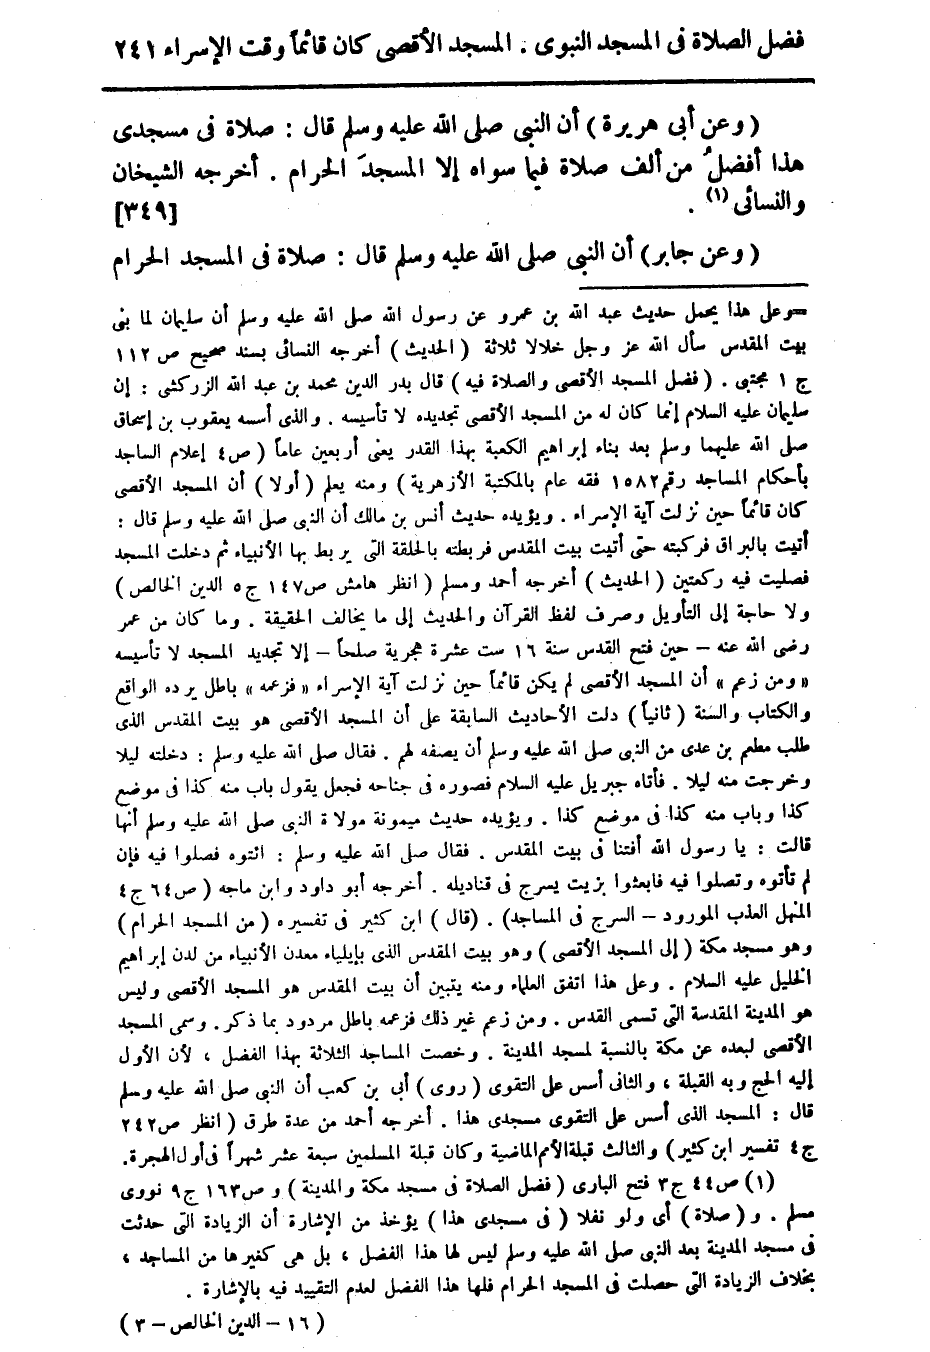 فضل الصلاة فى المسجد النبوى . المسجد الأقصى كان قائماً وقت الإسراء ٢٤١
( وعن أبى هريرة ) أن النبى صلى الله عليه وسلم قال : صلاة فى مسجدى
هذا أفضلُ من ألف صلاة فيما سواه إلا المسجدَ الحرام . أخرجه الشيخان
والنسائى (١) . [٣٤٩]
( وعن جابر ) أن النبى صلى الله عليه وسلم قال : صلاة فى المسجد الحرام
=وعلى هذا يحمل حديث عبد الله بن عمرو عن رسول الله صلى الله عليه وسلم أن سليمان لما بنى
بيت المقدس سأل الله عز وجل خلالا ثلاثة ( الحديث ) أخرجه النسائى بسند صحيح ص ١١٢
ج ١ مجتبى . ( فضل المسجد الأقصى والصلاة فيه ) قال بدر الدين محمد بن عبد الله الزركشى : إن
سليمان عليه السلام إنما كان له من المسجد الأقصى تجديده لا تأسيسه . والذى أسسه يعقوب بن إسحاق
صلى الله عليهما وسلم بعد بناء إبراهيم الكعبة بهذا القدر يعنى أربعين عاماً ( ص٤ إعلام الساجد
بأحكام المساجد رقم ١٥٨٢ فقه عام بالمكتبة الأزهرية ) ومنه يعلم ( أولا ) أن المسجد الأقصى
كان قائماً حين نزلت آية الإسراء . ويؤيده حديث أنس بن مالك أن النبى صلى الله عليه وسلم قال :
أتيت بالبراق فركبته حتى أتيت بيت المقدس فربطته بالحلقة التى يربط بها الأنبياء ثم دخلت المسجد
فصليت فيه ركعتين ( الحديث ) أخرجه أحمد ومسلم ( انظر هامش ص ١٤٧ ج ٥ الدين الخالص )
ولا حاجة إلى التأويل وصرف لفظ القرآن والحديث إلى ما يخالف الحقيقة . وما كان من عمر
رضى الله عنه – حين فتح القدس سنة ١٦ ست عشرة هجرية صلحاً – إلا تجديد المسجد لا تأسيسه
« ومن زعم » أن المسجد الأقصى لم يكن قائماً حين نزلت آية الإسراء « فزعمه » باطل يرده الواقع
والكتاب والسنة ( ثانياً ) دلت الأحاديث السابقة على أن المسجد الأقصى هو بيت المقدس الذى
طلب مطعم بن عدى من النبى صلى الله عليه وسلم أن يصفه لهم . فقال صلى الله عليه وسلم : دخلته ليلا
وخرجت منه ليلا . فأتاه جبريل عليه السلام فصوره فى جناحه فجعل يقول باب منه كذا فى موضع
كذا وباب منه كذا فى موضع كذا . ويؤيده حديث ميمونة مولاة النبى صلى الله عليه وسلم أنها
قالت : يا رسول الله أفتنا فى بيت المقدس . فقال صلى الله عليه وسلم : ائتوه فصلوا فيه فإن
لم تأتوه وتصلوا فيه فابعثوا بزيت يسرج فى قناديله . أخرجه أبو داود وابن ماجه ( ص ٦٤ ج ٤
المنهل العذب المورود – السرج فى المساجد ) . ( قال ) ابن كثير فى تفسيره ( من المسجد الحرام )
وهو مسجد مكة ( إلى المسجد الأقصى ) وهو بيت المقدس الذى بإيلياء معدن الأنبياء من لدن إبراهيم
الخليل عليه السلام . وعلى هذا اتفق العلماء ومنه يتبين أن بيت المقدس هو المسجد الأقصى وليس
هو المدينة المقدسة التى تسمى القدس . ومن زعم غير ذلك فزعمه باطل مردود بما ذكر . وسمى المسجد
الأقصى لبعده عن مكة بالنسبة لمسجد المدينة . وخصت المساجد الثلاثة بهذا الفضل ، لأن الأول
إليه الحج وبه القبلة ، والثانى أسس على التقوى ( روى ) أبى بن كعب أن النبى صلى الله عليه وسلم
قال : المسجد الذى أسس على التقوى مسجدى هذا . أخرجه أحمد من عدة طرق ( انظر ص ٢٤٢
ج ٤ تفسير ابن كثير ) والثالث قبلة الأمم الماضية وكان قبلة المسلمين سبعة عشر شهراً فى أول الهجرة.
(١) ص ٤٤ ج ٣ فتح البارى ( فضل الصلاة فى مسجد مكة والمدينة ) و ص ١٦٣ ج ٩ نووى
مسلم . و ( صلاة ) أى ولو نفلا ( فى مسجدى هذا ) يؤخذ من الإشارة أن الزيادة التى حدثت
فى مسجد المدينة بعد النبى صلى الله عليه وسلم ليس لها هذا الفضل ، بل هى كغيرها من المساجد ،
بخلاف الزيادة التى حصلت فى المسجد الحرام فلها هذا الفضل لعدم التقييد فيه بالإشارة .
( ١٦ – الدين الخالص – ٣ )